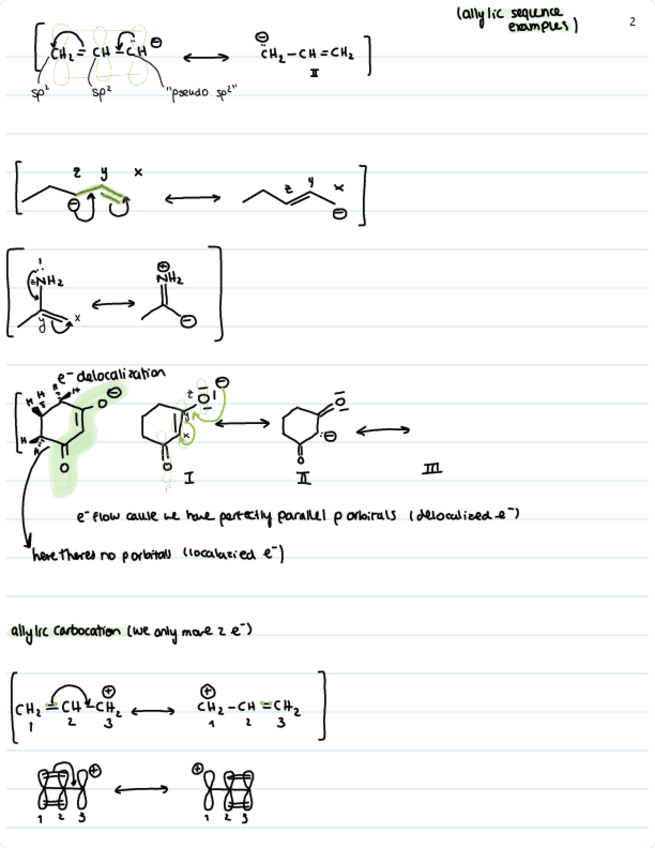 (allylic sequence
examples)
2
CH₂ = CH - CH ⊖ ⟷ ⊖ CH₂ - CH = CH₂
II
sp² sp² "pseudo sp²"
z y x
z y x
⊖ ⊖
⊕
NH₂ NH₂
y x ⊖
e⁻ delocalization
H H H H O ⊖ z O ⊖ O
y x ⊖
H H
O O O
I II III
e⁻ flow cause we have perfectly parallel p orbirals (delocalized e⁻)
here theres no p orbitals (localazied e⁻)
allylic carbocation (we only move 2 e⁻)
⊕ ⊕
CH₂ = CH - CH₂ ⟷ CH₂ - CH = CH₂
1 2 3 1 2 3
⊕ ⟷ ⊕
1 2 3 1 2 3